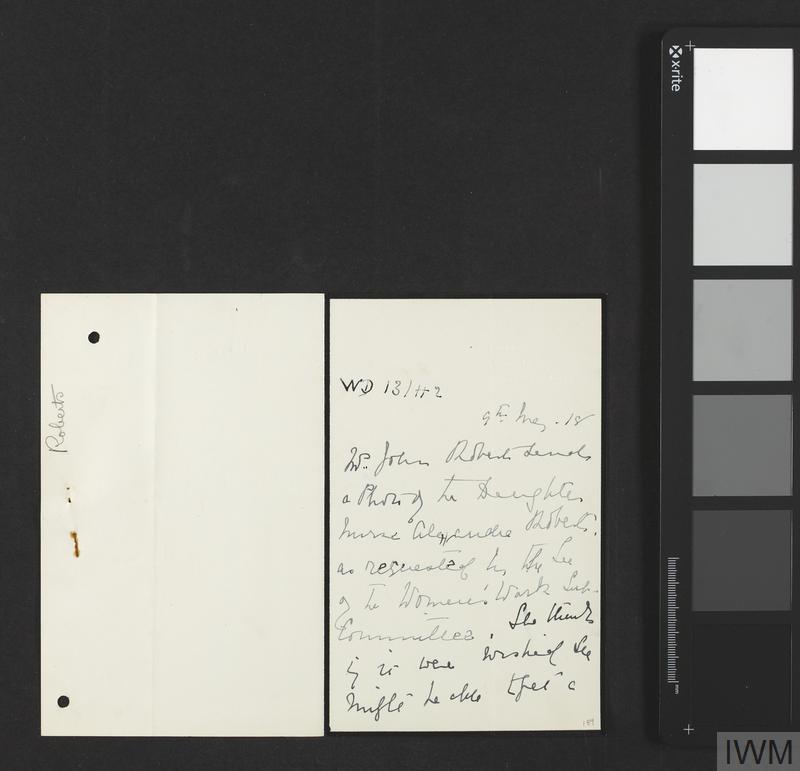 Roberts
WD 13/H2
9th May. 18
Mrs. John Roberts sends
a Photo of her Daughter
Nurse Alexandra Roberts.
as requested by the Sec
of the Women's Work Sub-
Committee. She thinks
if it were wished she
might be able to get a
189
x-rite
mm
IWM